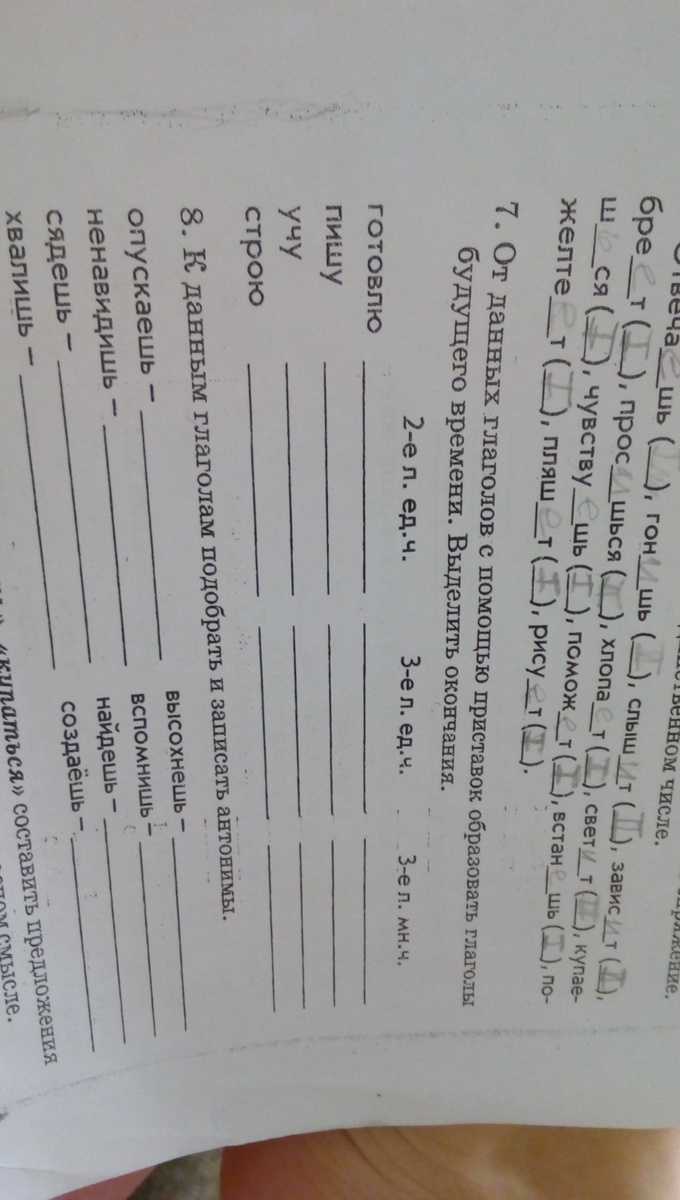 ственном числе.
шь (__), гон и шь (__), слыш и т (II), завис и т (__),
бре е т (I), прос и шься (__), хлопа е т (I), свет и т (II), купае-
ш ь ся (I), чувству е шь (I), помож е т (I), встан е шь (I), по-
желте е т (I), пляш е т (I), рису е т (I).
7. От данных глаголов с помощью приставок образовать глаголы
будущего времени. Выделить окончания.
2-е л. ед.ч. 3-е л. ед.ч. 3-е л. мн.ч.
готовлю
пишу
учу
строю
8. К данным глаголам подобрать и записать антонимы.
опускаешь – высохнешь –
ненавидишь – вспомнишь –
сядешь – найдешь –
хвалишь – создаёшь –
«купаться» составить предложения
смысле.